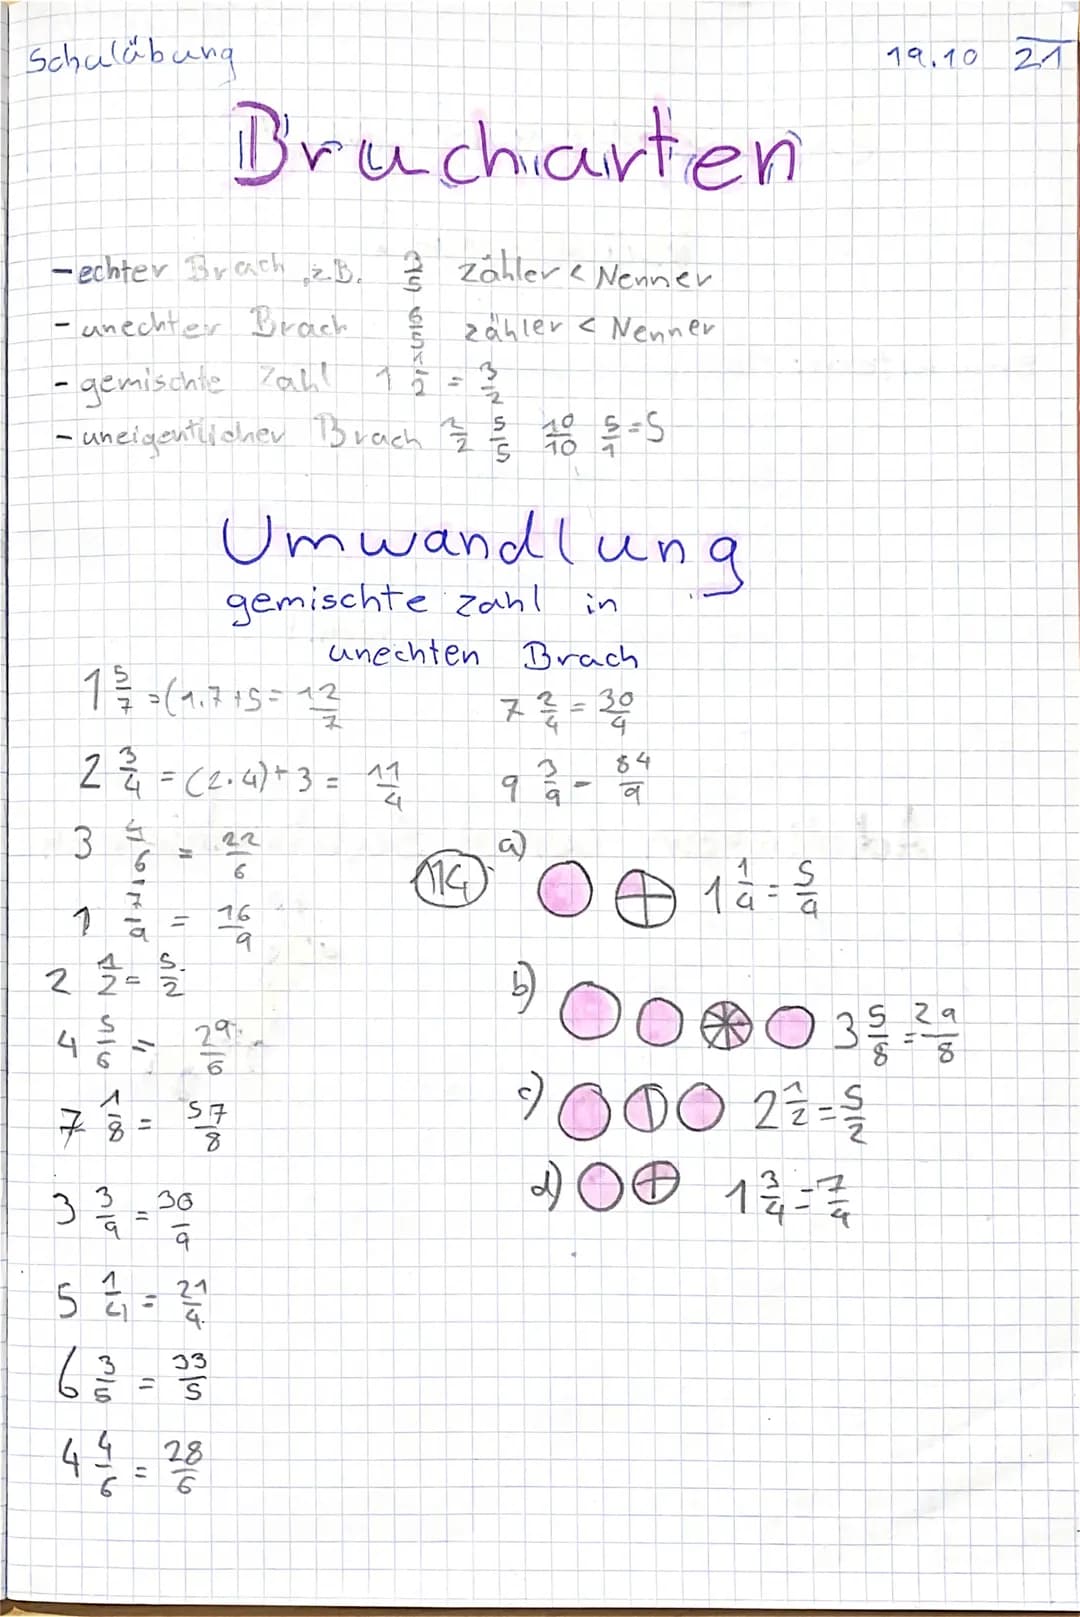 Schulübung 19.10 21
Bruchiarten
- echter Bruch, z.B. 3/5 zähler < Nenner
- unechter Bruch 6/5 zähler < Nenner
- gemischte Zahl 1 1/2 = 3/2
- uneigentlicher Bruch 2/2 5/5 10/10 5/1 = 5
Umwandlung
gemischte zahl in
unechten Bruch
1 5/7 = (1.7+5 = 12/7
7 2/4 = 30/4
2 3/4 = (2.4)+3 = 11/4
9 3/9 = 84/9
3 4/6 = 22/6
1 7/9 = 16/9
2 1/2 = 5/2
4 5/6 = 29/6
7 1/8 = 57/8
3 3/9 = 30/9
5 1/4 = 21/4
6 3/5 = 33/5
4 4/6 = 28/6
114 a) 1 1/4 = 5/4
b) 3 5/8 = 29/8
c) 2 1/2 = 5/2
d) 1 3/4 = 7/4